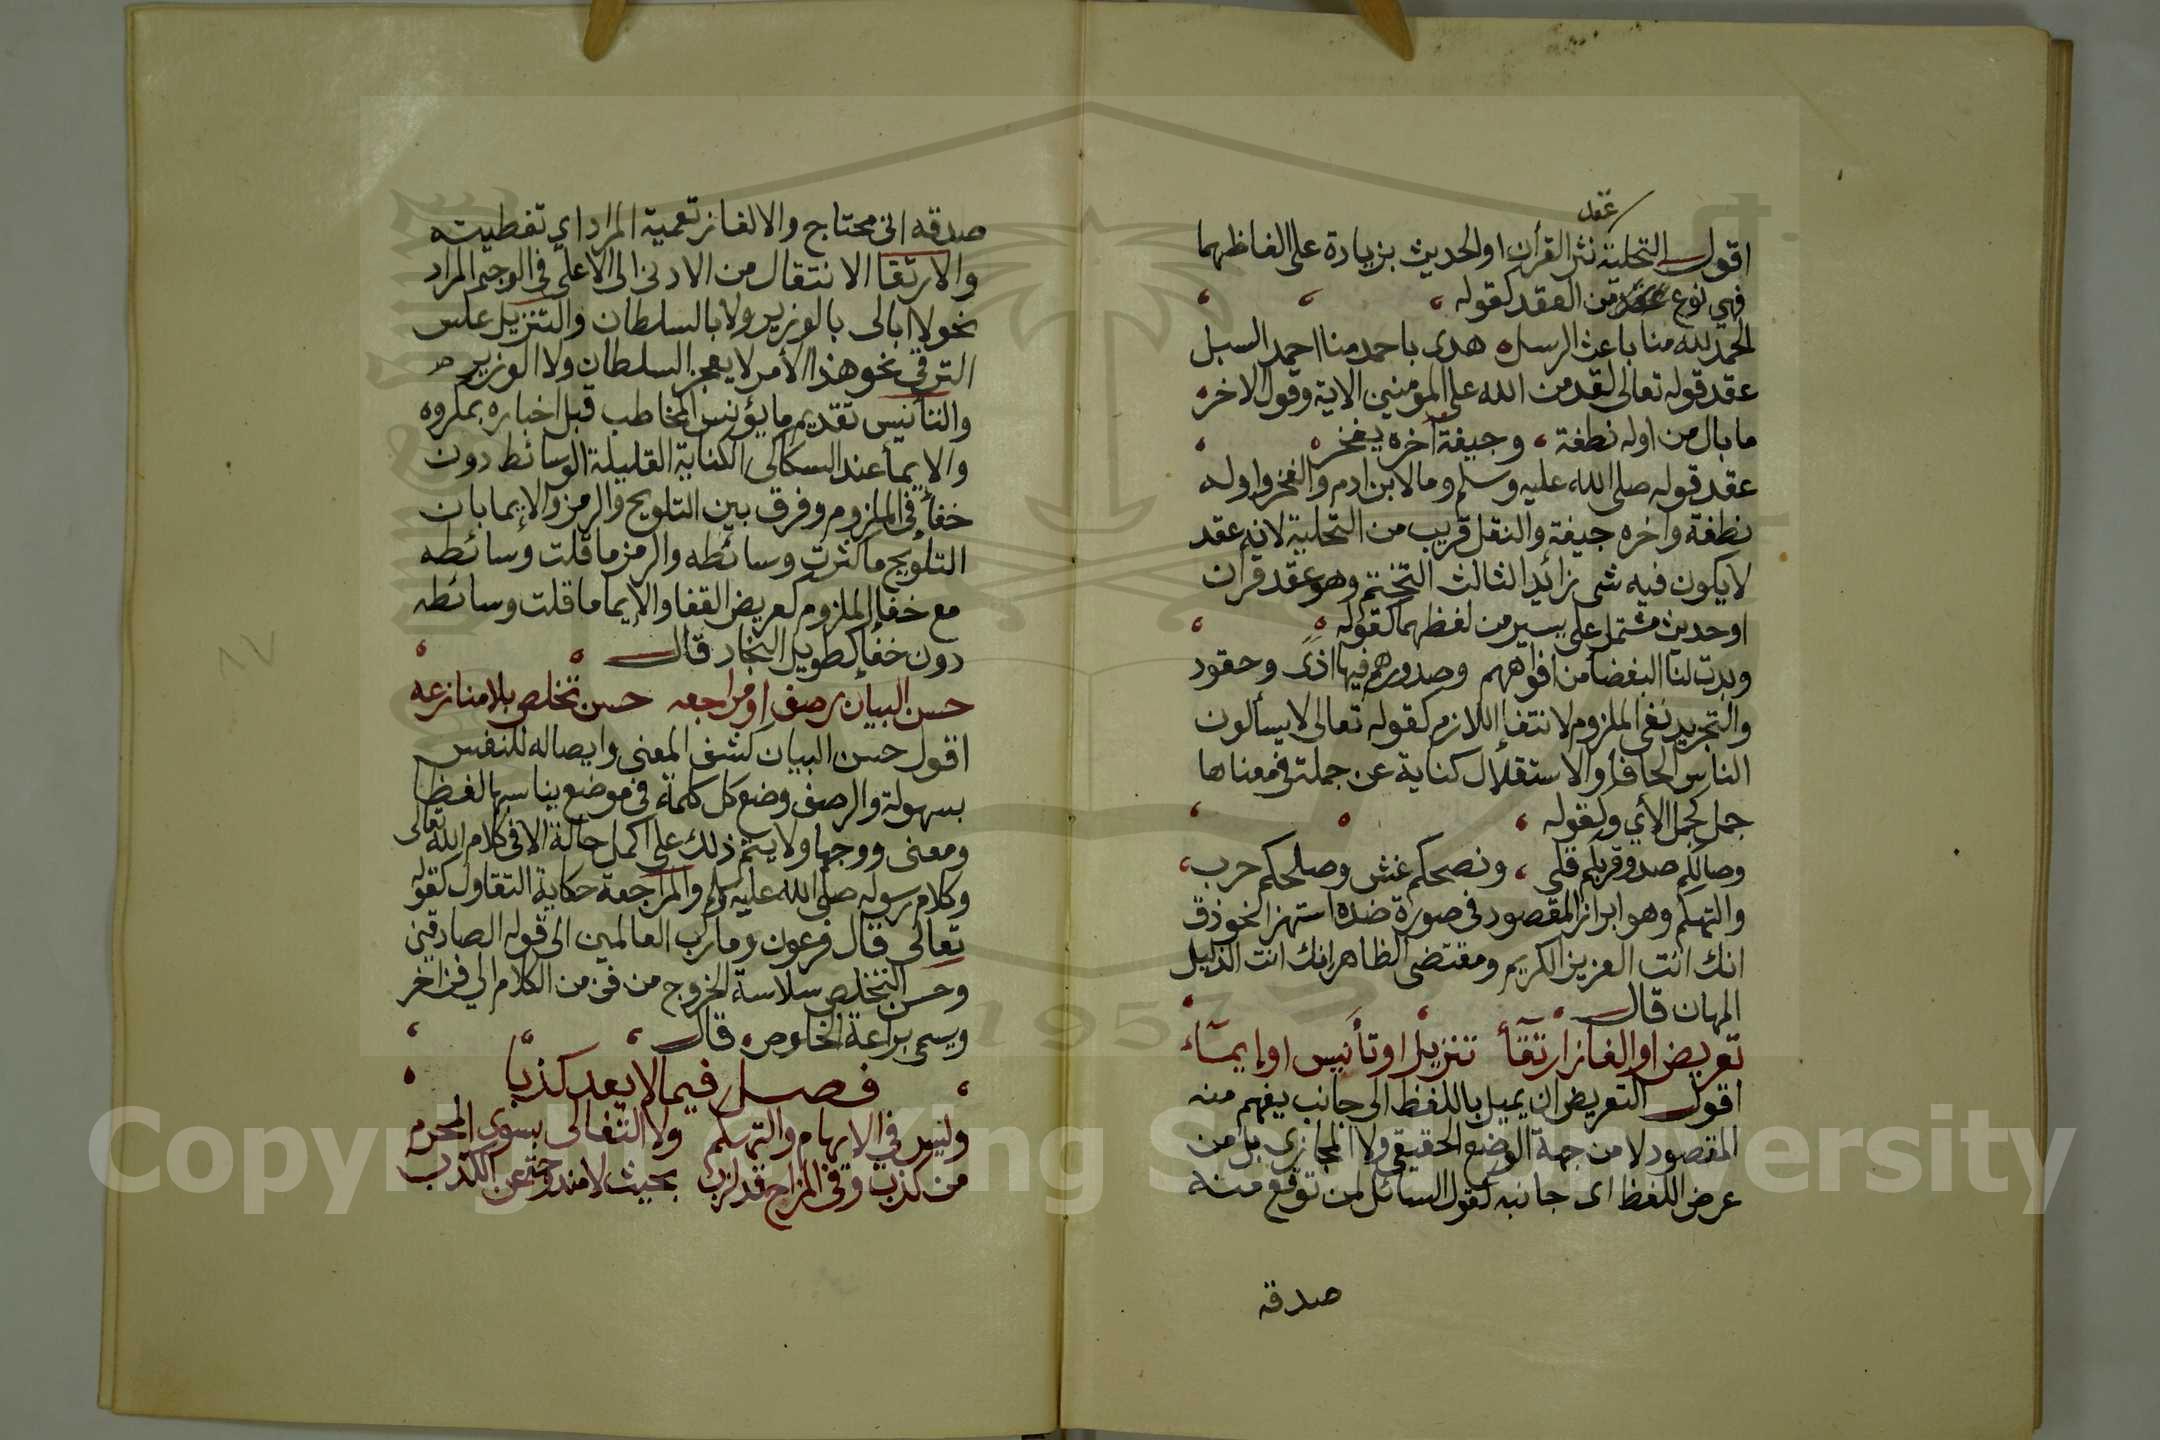 عقد
اقول التحلية نثر القرأن او الحديث بزيادة على الفاظهما
فهي نوع من العقد كقوله
الحمد لله منا باعث الرسل هدى باحمد منا احمد السبل
عقد قوله تعالى لقد من الله على المومنين الاية وقول الاخر
ما بال من اوله نطفة وجيفة آخره يفخر
عقد قوله صلى الله عليه وسلم وما لابن ادم والفخر واوله
نطفة واخره جيفة والنقل قريب من التحلية لانه عقد
لا يكون فيه شى زائد الثالث التختم وهو عقد قرآن
او حديث مشتمل على يسير من لفظهما كقوله
وبدت لنا البغضا من افواههم وصدورهم فيها اذى وحقود
والتجريد نفى الملزوم لانتفإ اللازم كقوله تعالى لا يسألون
الناس الحافا والاستقلال كناية عن جملة فى معناها
جمل كجمل الأي وكقوله
وصالكم صد وقربكم قلى ونصحكم غش وصلحكم حرب
والتهكم وهو ابراز المقصود فى صورة ضده استهزا نحو ذق
انك انت العزيز الكريم ومقتضى الظاهر انك انت الذليل
المهان قال
تعريض او الغاز ارتقأ تنزيل او تأنيس او إيمآء
اقول التعريض ان يميل باللفظ الى جانب يفهم منه
المقصود لا من جهة الوضع الحقيقى ولا المجازى بل من
عرض اللفظ اى جانبه كقول السائل لمن توقع منه
صدقة
صدقه انى محتاج والالغاز تعمية المراد اي تغطيته
والارتقا الانتقال من الادنى الى الاعلى فى الوجه المراد
نحو لا ابالى بالوزير ولا بالسلطان والتنزيل عكس
الترقي نحو هذا الأمر لا يعجز السلطان ولا الوزير
والتأنيس تقديم ما يؤنس المخاطب قبل اخباره بمكروه
والايمأ عند السكاكى الكناية القليلة الوسائط دون
خفأ فى الملزوم وفرق بين التلويح والرمز والايما بان
التلويح ما كثرت وسائطه والرمز ما قلت وسائطه
مع خفإ الملزوم كعريض القفا والايما ما قلت وسائطه
دون خفإ كطويل النجاد قال
حسن البيان رصف او مراجعه حسن تخلص بلا منازعه
اقول حسن البيان كشف المعنى وايصاله للنفس
بسهولة والرصف وضع كل كلمة فى موضع يناسبها لفظا
ومعنى ووجها ولا يتم ذلك على اكمل حالة الا فى كلام الله تعالى
وكلام رسوله صلى الله عليه وسلم والمراجعة حكاية التقاول كقوله
تعالى قال فرعون وما رب العالمين الى قوله الصادقين
وحسن التخلص سلاسة الخروج من فن من الكلام الي فن اخر
ويسمى براعة الخلوص قال
فصل فيما لا يعد كذبا
وليس في الايهام والتهكم ولا التغالى بسوى المحرم
من كذب وفى المزاح قد لزب بحيث لا مندوحة عن الكذب